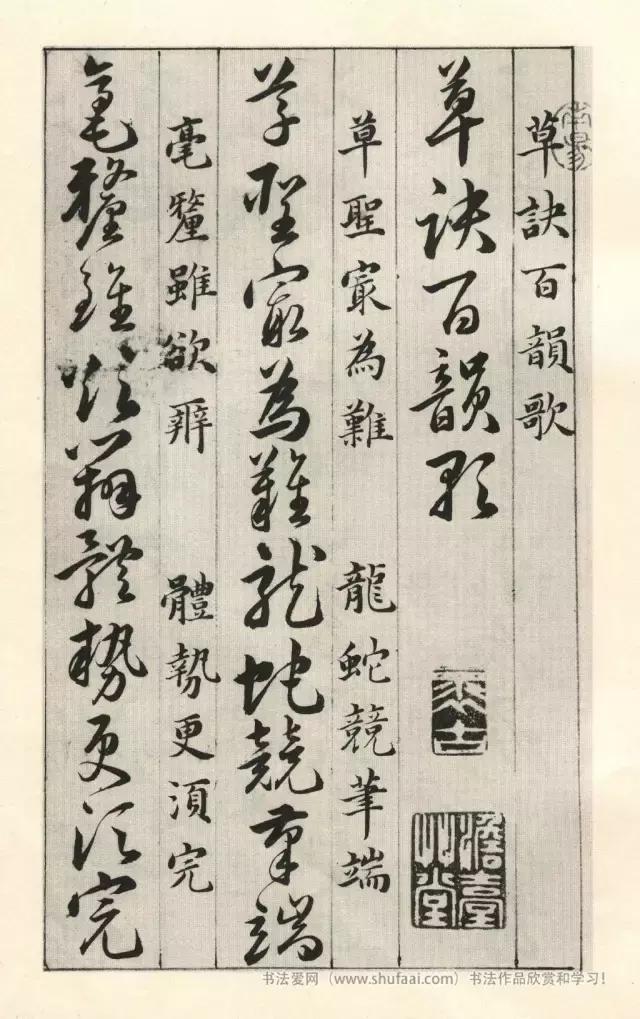 草訣百韻歌
草訣百韻歌
草聖㝡為難 龍蛇競筆端
草聖㝡為難龍蛇競筆端
毫釐雖欲辨 體勢更須完
毫釐雖欲辨體勢更須完
書法爱网（www.shufaai.com）书法作品欣赏和学习！